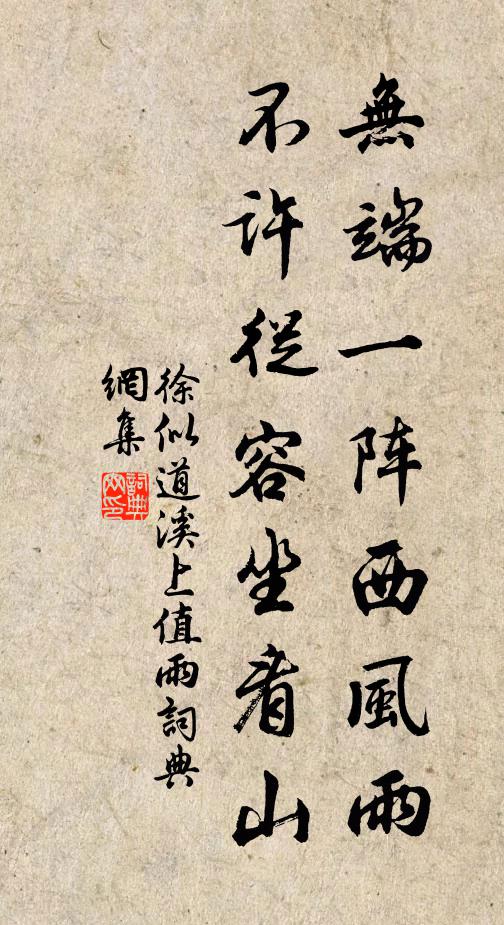 無端一阵西風雨
不許從容坐看山
徐似道溪上值雨詞典
網集
詞典
网印